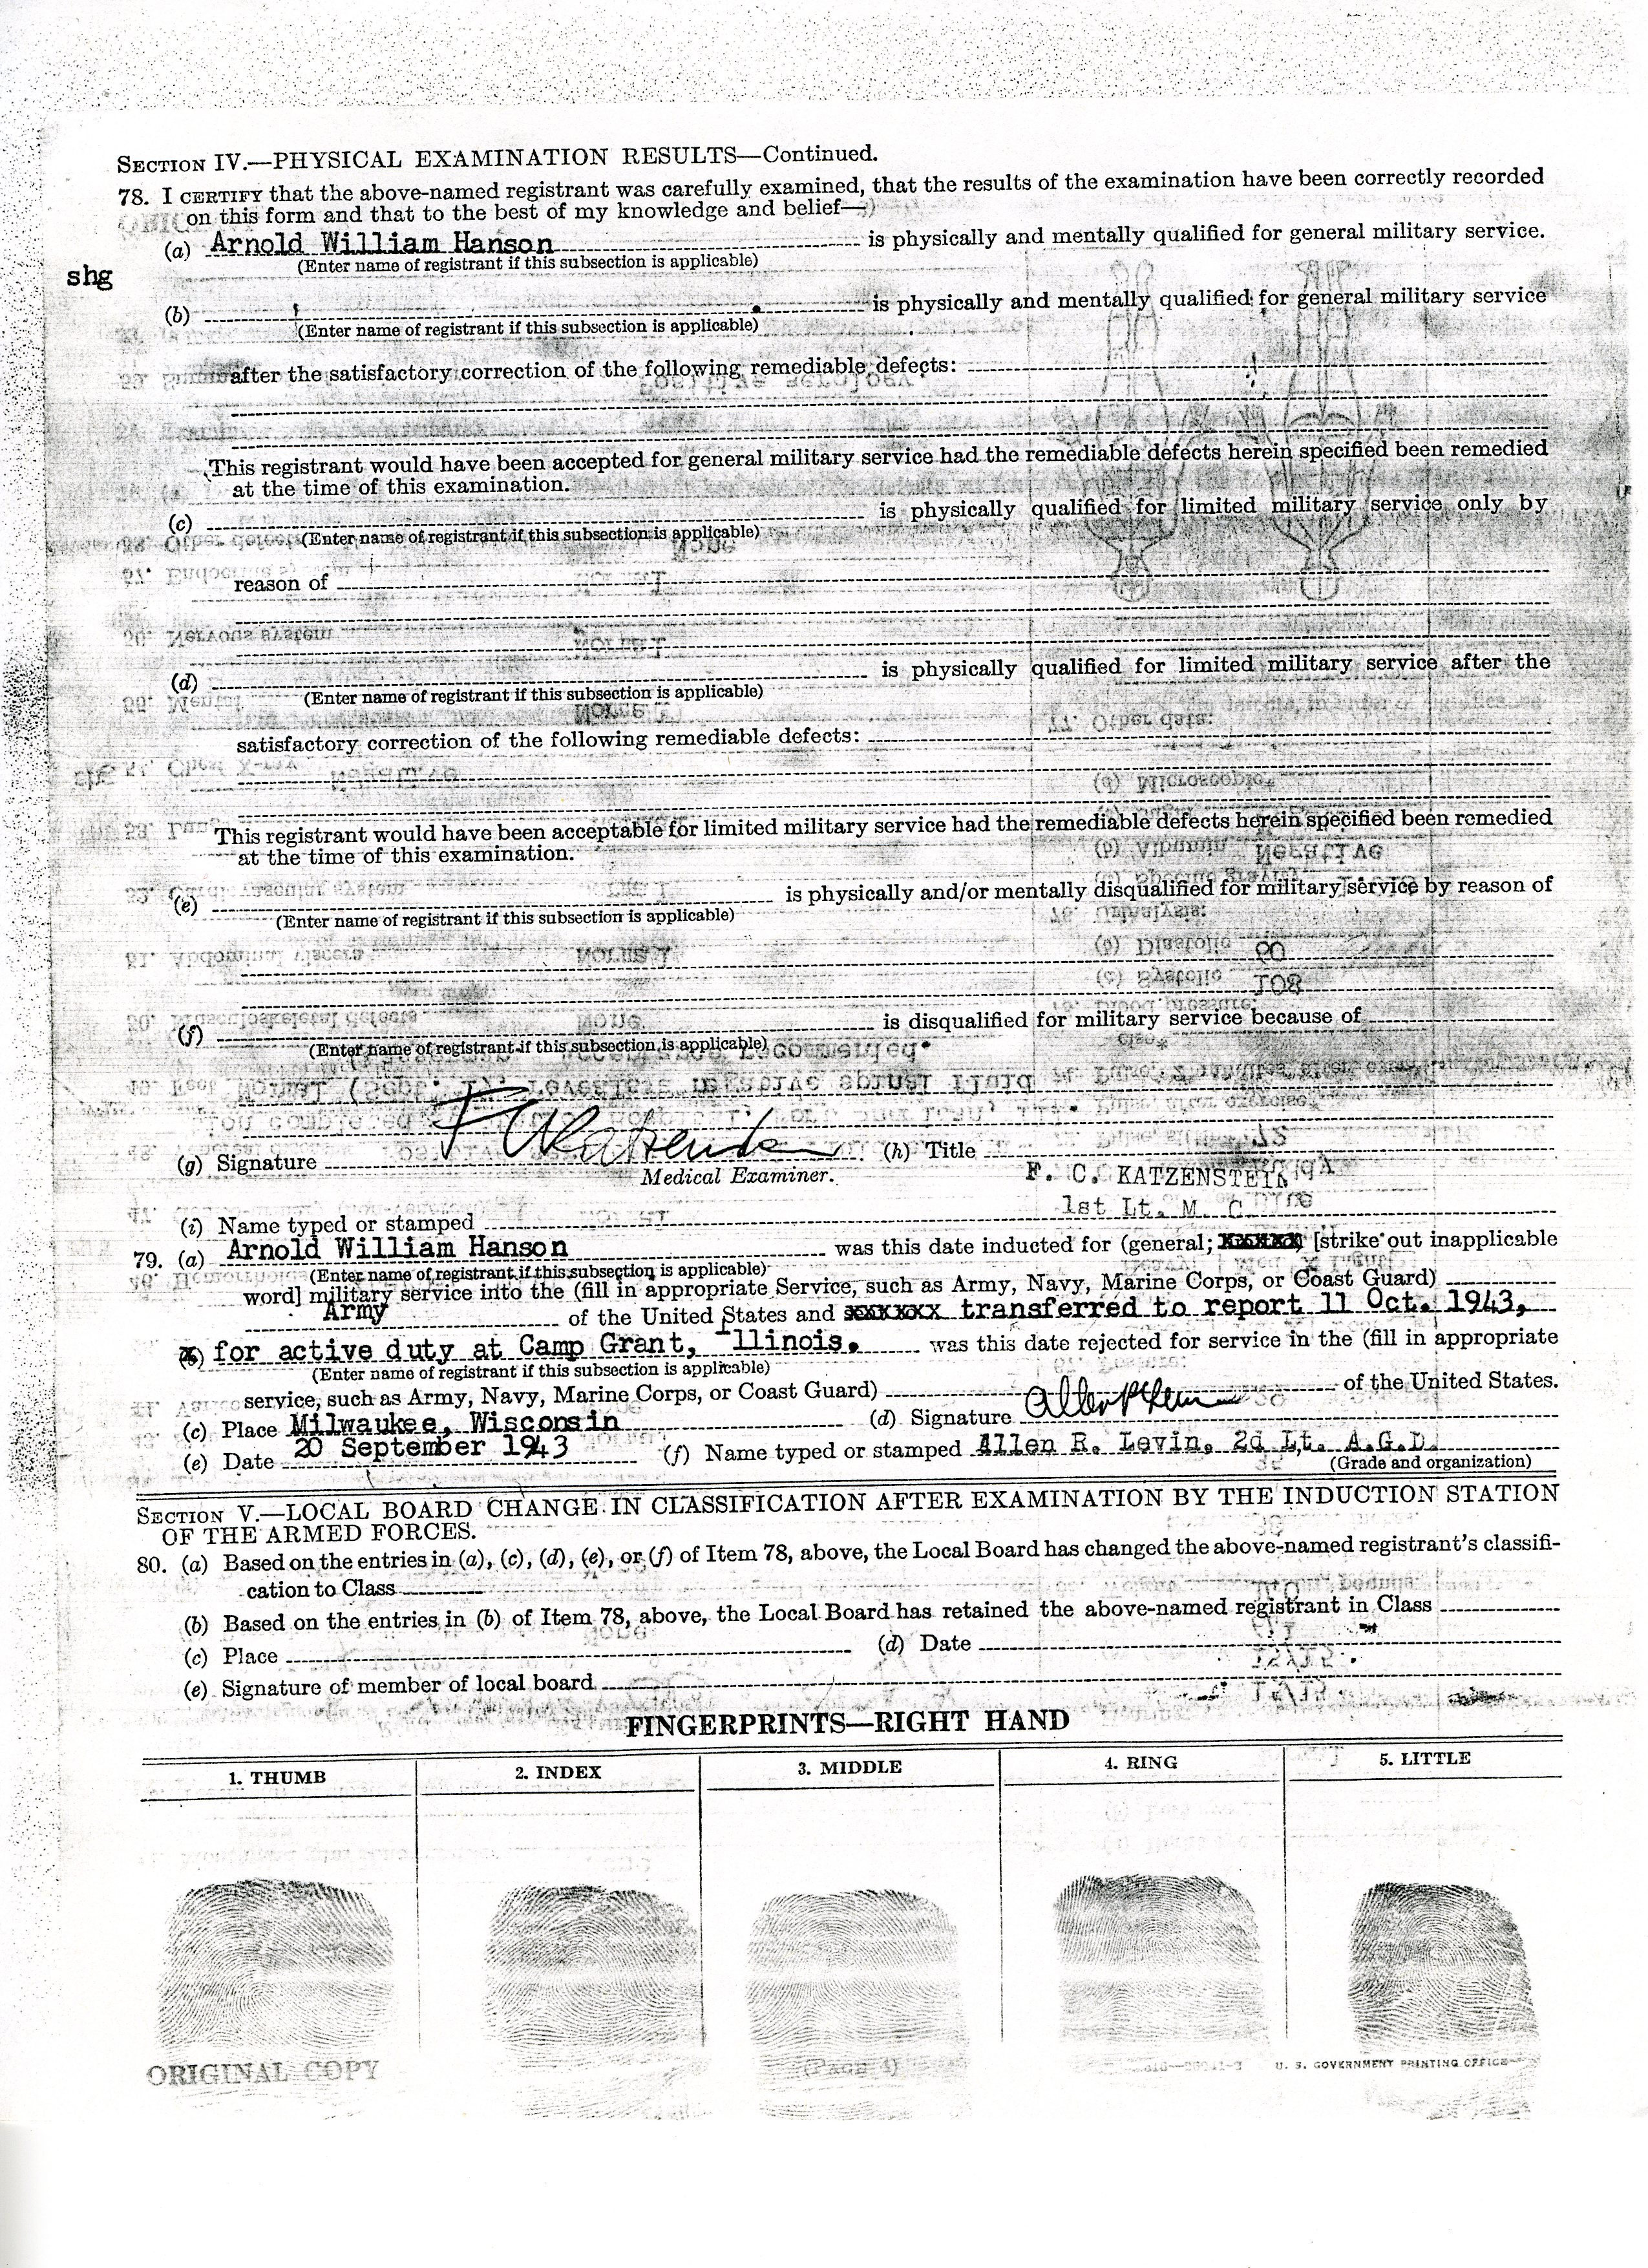 SECTION IV.—PHYSICAL EXAMINATION RESULTS—Continued.
78. I CERTIFY that the above-named registrant was carefully examined, that the results of the examination have been correctly recorded
on this form and that to the best of my knowledge and belief—
(a) Arnold William Hanson is physically and mentally qualified for general military service.
(Enter name of registrant if this subsection is applicable)
shg
(b) is physically and mentally qualified for general military service
(Enter name of registrant if this subsection is applicable)
after the satisfactory correction of the following remediable defects:
This registrant would have been accepted for general military service had the remediable defects herein specified been remedied
at the time of this examination.
(c) is physically qualified for limited military service only by
(Enter name of registrant if this subsection is applicable)
reason of
(d) is physically qualified for limited military service after the
(Enter name of registrant if this subsection is applicable)
satisfactory correction of the following remediable defects:
This registrant would have been acceptable for limited military service had the remediable defects herein specified been remedied
at the time of this examination.
(e) is physically and/or mentally disqualified for military service by reason of
(Enter name of registrant if this subsection is applicable)
(f) is disqualified for military service because of
(Enter name of registrant if this subsection is applicable)
(g) Signature (h) Title
Medical Examiner.
F. C. KATZENSTEIN
1st Lt. M. C.
(i) Name typed or stamped
79. (a) Arnold William Hanson was this date inducted for (general; xxxxxx [strike out inapplicable
(Enter name of registrant if this subsection is applicable)
word] military service into the (fill in appropriate Service, such as Army, Navy, Marine Corps, or Coast Guard)
Army of the United States and xxxxxx transferred to report 11 Oct. 1943,
(b) for active duty at Camp Grant, Illinois. was this date rejected for service in the (fill in appropriate
(Enter name of registrant if this subsection is applicable)
service, such as Army, Navy, Marine Corps, or Coast Guard) of the United States.
(c) Place Milwaukee, Wisconsin (d) Signature
(e) Date 20 September 1943 (f) Name typed or stamped Allen R. Levin, 2d Lt. A.G.D.
(Grade and organization)
SECTION V.—LOCAL BOARD CHANGE IN CLASSIFICATION AFTER EXAMINATION BY THE INDUCTION STATION
OF THE ARMED FORCES.
80. (a) Based on the entries in (a), (c), (d), (e), or (f) of Item 78, above, the Local Board has changed the above-named registrant's classifi-
cation to Class
(b) Based on the entries in (b) of Item 78, above, the Local Board has retained the above-named registrant in Class
(c) Place (d) Date
(e) Signature of member of local board
FINGERPRINTS—RIGHT HAND
1. THUMB 2. INDEX 3. MIDDLE 4. RING 5. LITTLE
ORIGINAL COPY (PAGE 4) U. S. GOVERNMENT PRINTING OFFICE